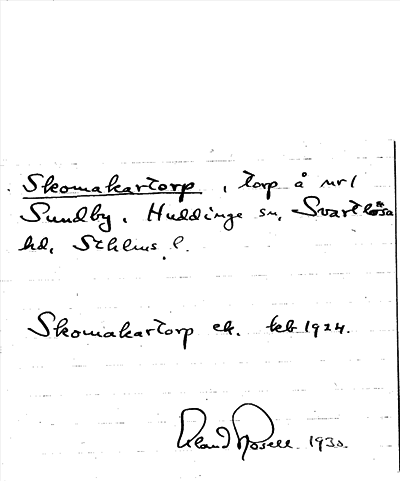 Skomakartorp, torp å nr 1
Sundby, Huddinge sn, Svartlösa
hd, Sthlms l.
Skomakartorp ek. kb 1924.
Roland Rosell. 1930.